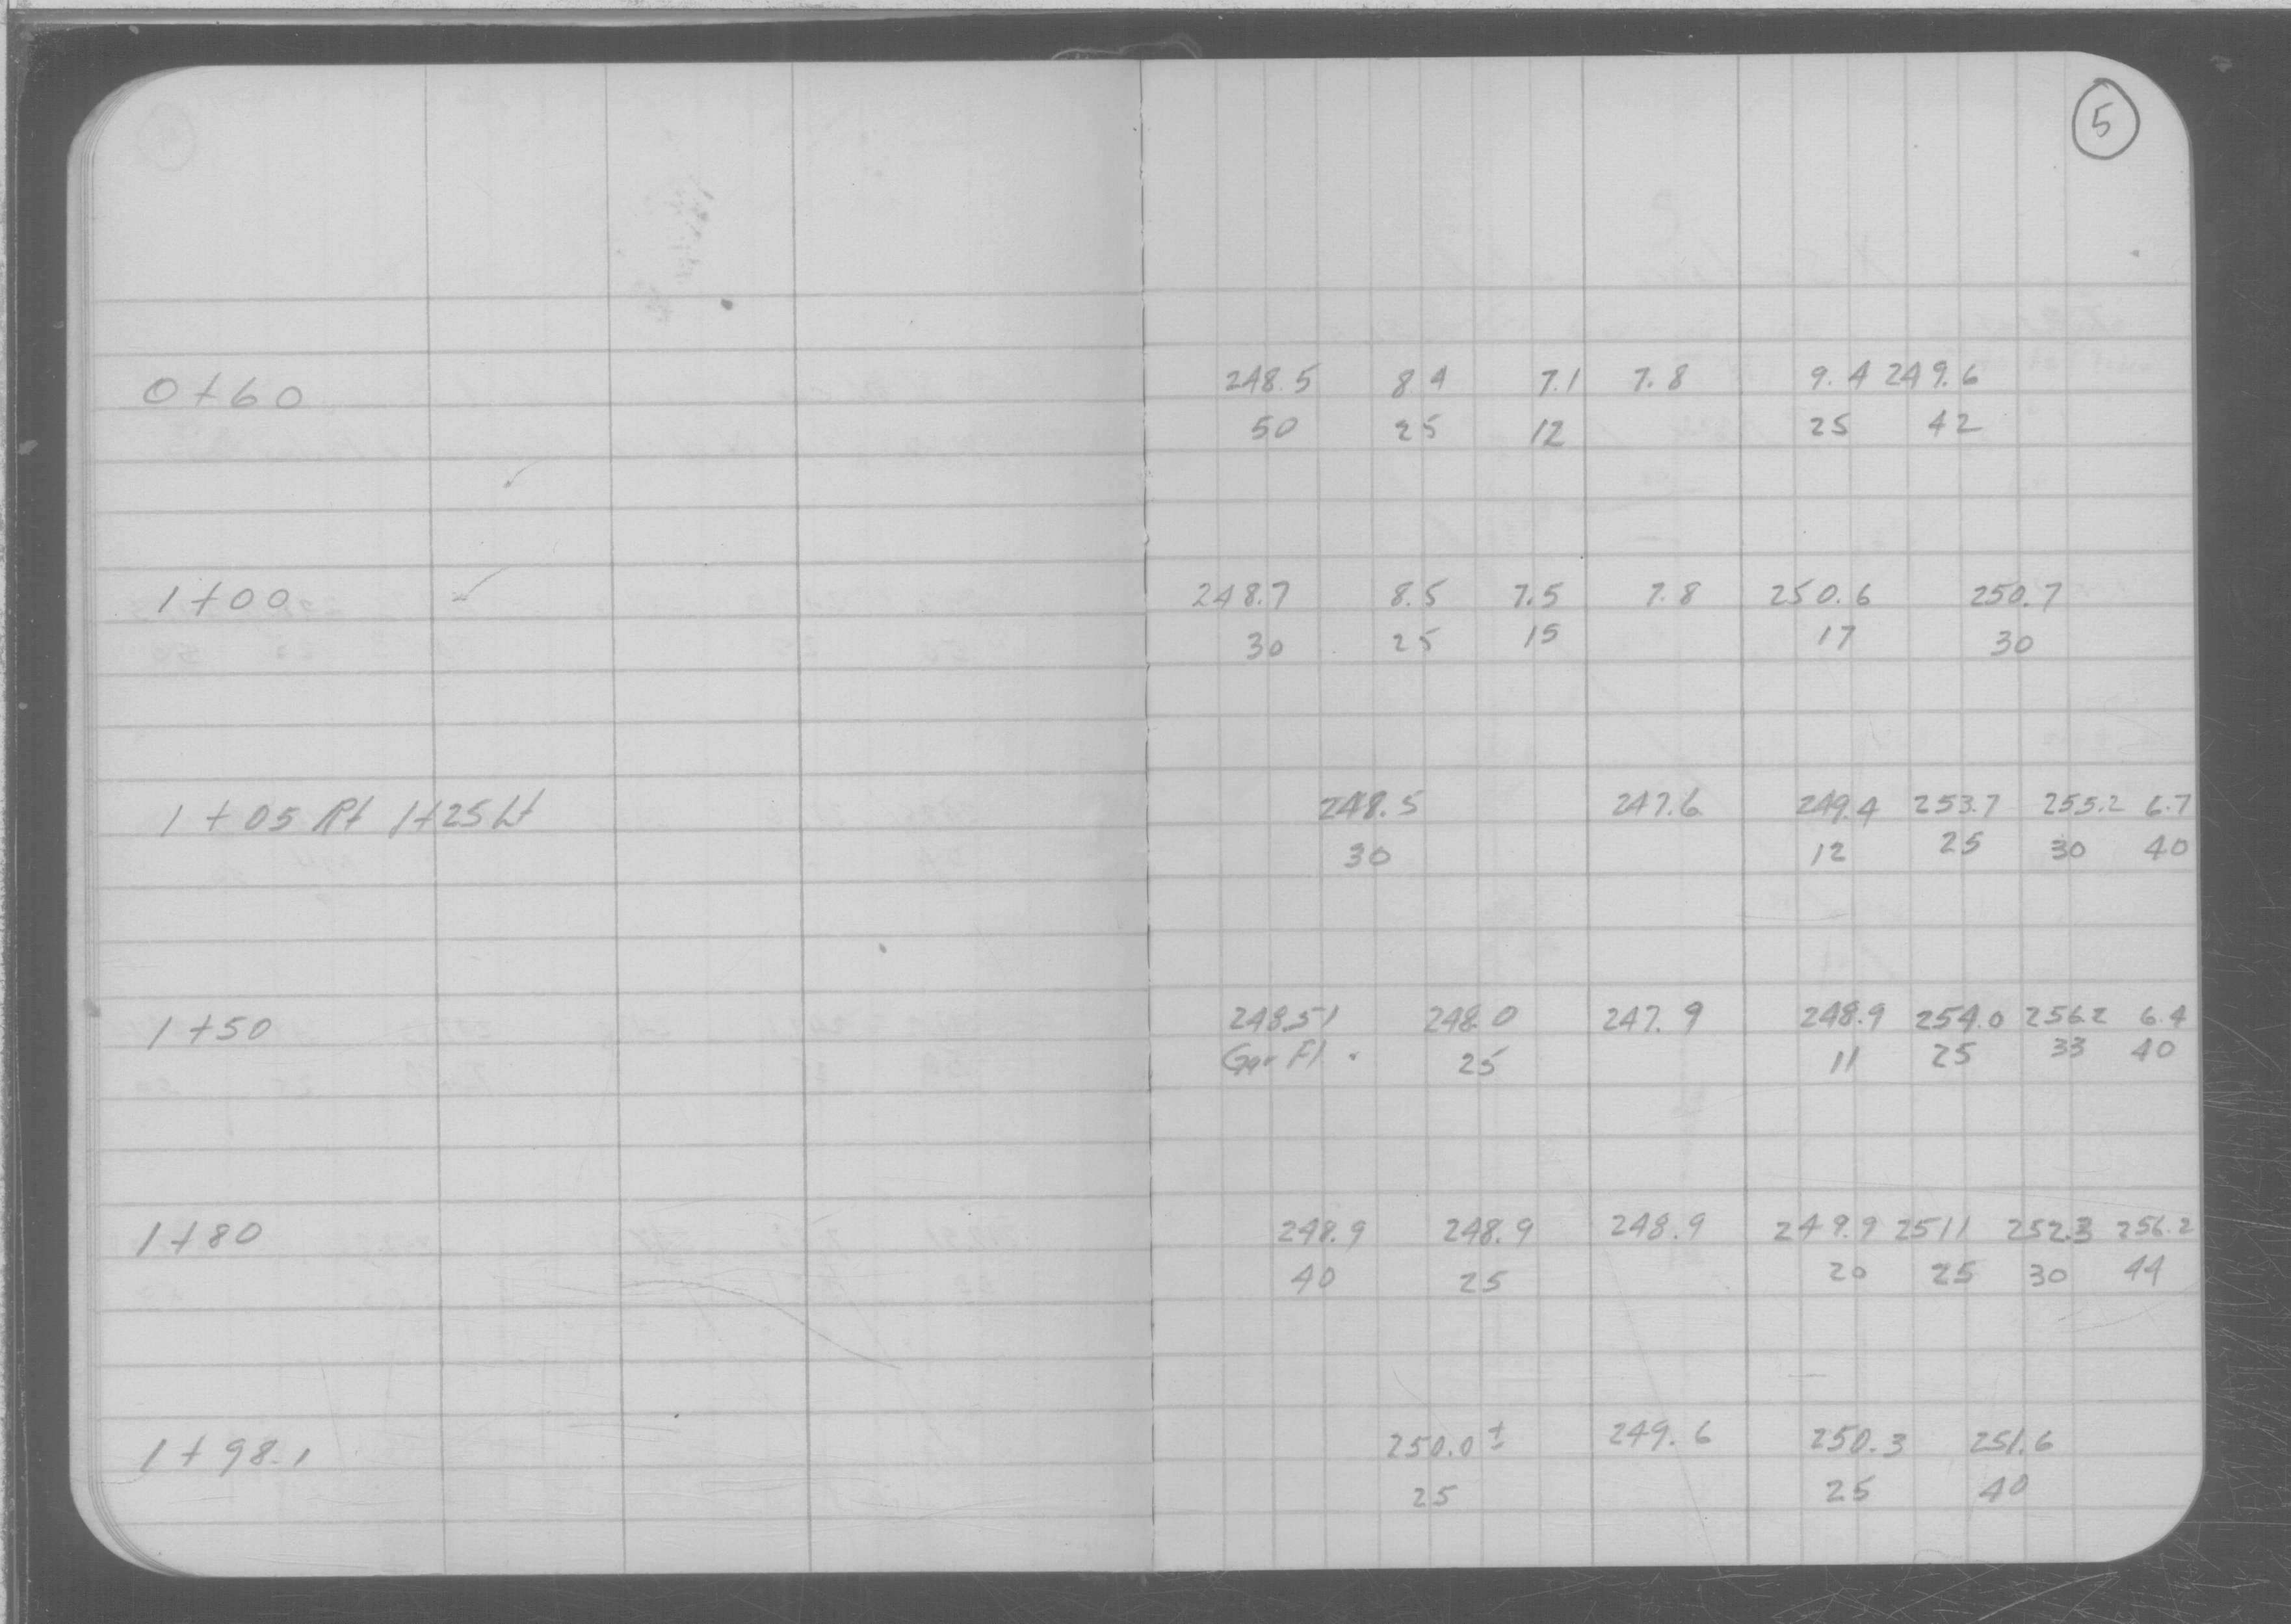 5
0+60 248.5 8 4 7.1 7.8 9.4 249.6
50 25 12 25 42
1+00 248.7 8.5 7.5 7.8 250.6 250.7
30 25 15 17 30
1+05 Rt 1+25 Lt 248.5 247.6 249.4 253.7 255.2 6.7
30 12 25 30 40
1+50 248.51 248.0 247.9 248.9 254.0 256.2 6.4
Gar Fl. 25 11 25 33 40
1+80 248.9 248.9 248.9 249.9 251.1 252.3 256.2
40 25 20 25 30 44
1+98.1 250.0± 249.6 250.3 251.6
25 25 40